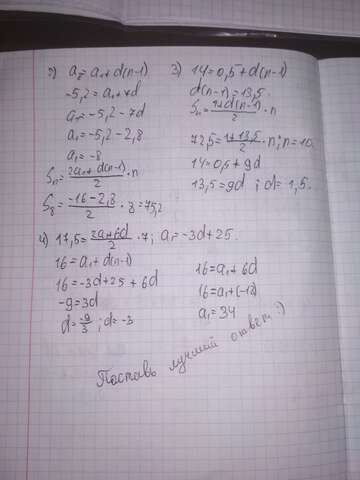 2) a₈ = a₁ + d(n-1)
-5,2 = a₁ + 7d
a₁ = -5,2 - 7d
a₁ = -5,2 - 2,8
a₁ = -8
Sₙ = (2a₁ + d(n-1))/2 · n
S₈ = (-16 - 2,8)/2 · 8 = 75,2
3) 14 = 0,5 + d(n-1)
d(n-1) = 13,5.
Sₙ = (1 + d(n-1))/2 · n
72,5 = (1 + 13,5)/2 · n; n = 10
14 = 0,5 + 9d
13,5 = 9d ; d = 1,5.
4) 17,5 = (2a₁ + 6d)/2 · 7 ; a₁ = -3d + 25.
16 = a₁ + d(n-1)
16 = -3d + 25 + 6d
-9 = 3d
d = -9/3 ; d = -3
16 = a₁ + 6d
16 = a₁ + (-18)
a₁ = 34
Поставь лучший ответ :)